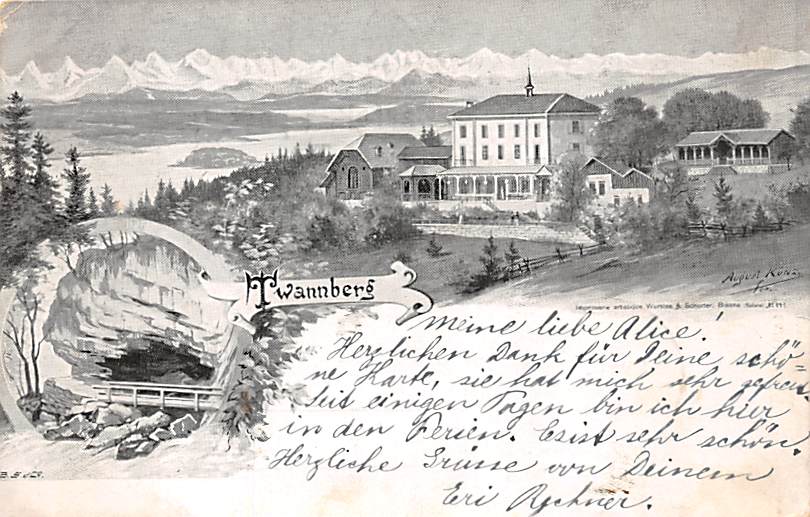 August Kunz
Twannberg
Imprimerie artistique Würsten & Schorter, Bienne
Meine liebe Alice!
Herzlichen Dank für Deine schö=
ne Karte, sie hat mich sehr gefreut
Seit einigen Tagen bin ich hier
in den Ferien. Es ist sehr schön.
Herzliche Grüsse von Deinem
Eri